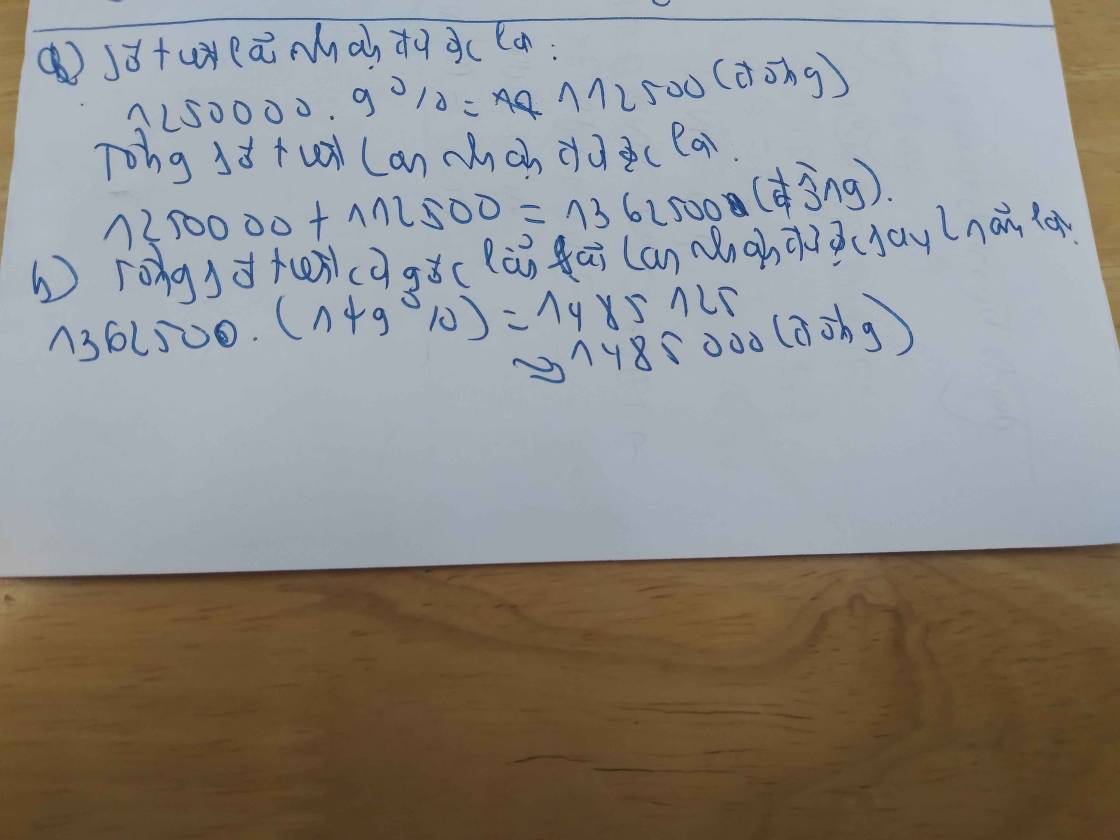 a) Số tiền lãi nhận được là:
1250000. 9% = 112500 (đồng)
Tổng số tiền Lan nhận được là.
1250000 + 112500 = 1362500 (đồng).
b) Tổng số tiền cả gốc lẫn lãi Lan nhận được sau 2 năm là.
1362500. (1+9%) = 1485125
≈ 1485000 (đồng)